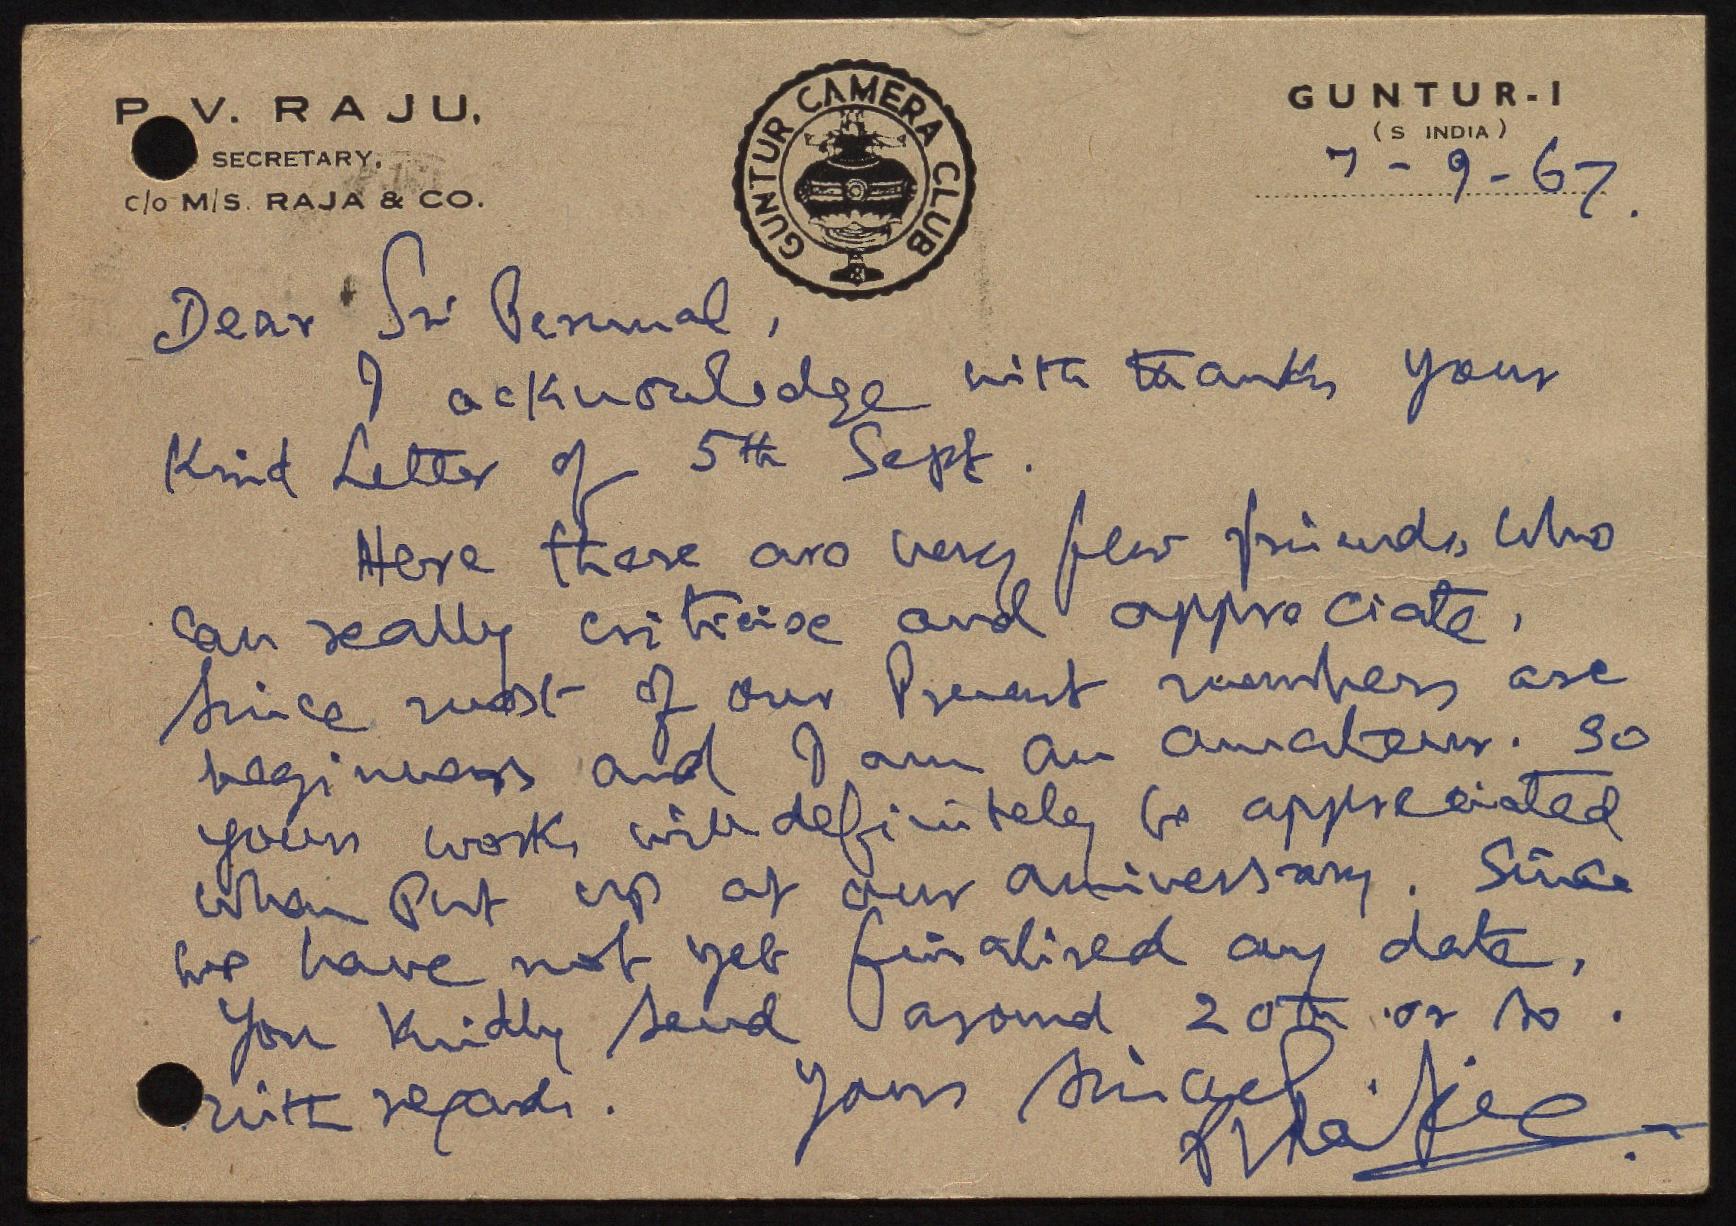 P. V. RAJU,
SECRETARY,
c/o M/S. RAJA & CO.
GUNTUR CAMERA CLUB
GUNTUR-1
( S INDIA )
7-9-67.
Dear Sri Perumal,
I acknowledge with thanks your
Kind Letter of 5th Sept.
Here there are very few friends, who
can really criticise and appreciate,
since most of our Present members are
beginners and I am an amateur. So
your work, will definitely be appreciated
when Put up at our anniversary. Since
we have not yet finalised any date,
You Kindly send around 20th or so.
with regards.
Yours sincerely
P V Raju